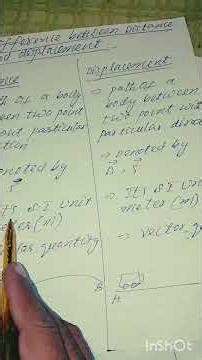 ifference between Distance
nd displacement
nce
th of a body
een two point
out particular
tion
noted by
S
Its S I Unit
eter (m)
lar quantity
Displacement
→ path of a
body between
two point with
particular direc
→ denoted by
D, S
→ Its S I unit
meter (m)
→ vector qu
B
A
InShOt